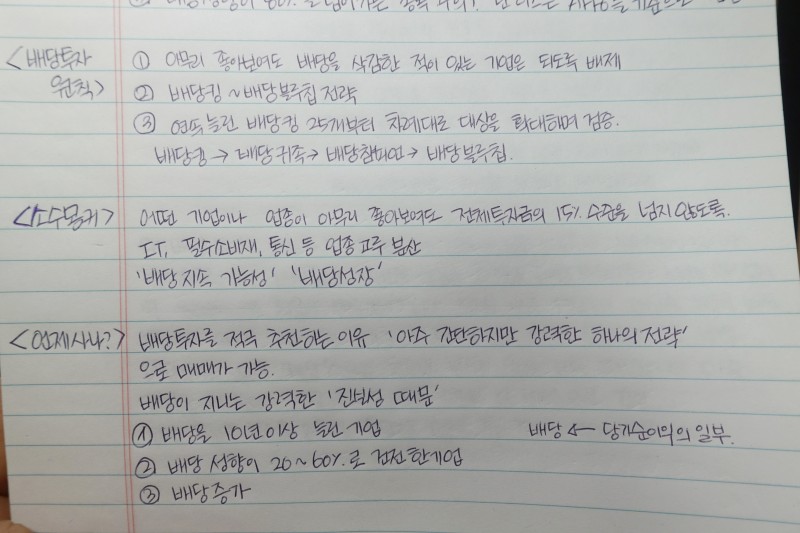 배당성향이 80%를 넘어가는
<배당투자 ① 아무리 좋아보여도 배당을 삭감한 적이 있는 기업은 되도록 배제
원칙> ② 배당킹 ~ 배당블루칩 전략
③ 연속 늘린 배당킹 25개부터 차례대로 대상을 확대하며 검증.
배당킹 → 배당귀족 → 배당챔피언 → 배당블루칩.
<소수몽키> 어떤 기업이나 업종이 아무리 좋아보여도 전체투자금의 15% 수준을 넘지 않도록.
IT, 필수소비재, 통신 등 업종 고루 분산
'배당 지속 가능성' '배당성장'
<언제사나?> 배당투자를 적극 추천하는 이유 '아주 간단하지만 강력한 하나의 전략'
으로 매매가 가능.
배당이 지니는 강력한 '진실성 때문'
① 배당을 10년이상 늘린 기업 배당 ← 당기순이익의 일부.
② 배당 성향이 20~60%로 건전한기업
③ 배당증가